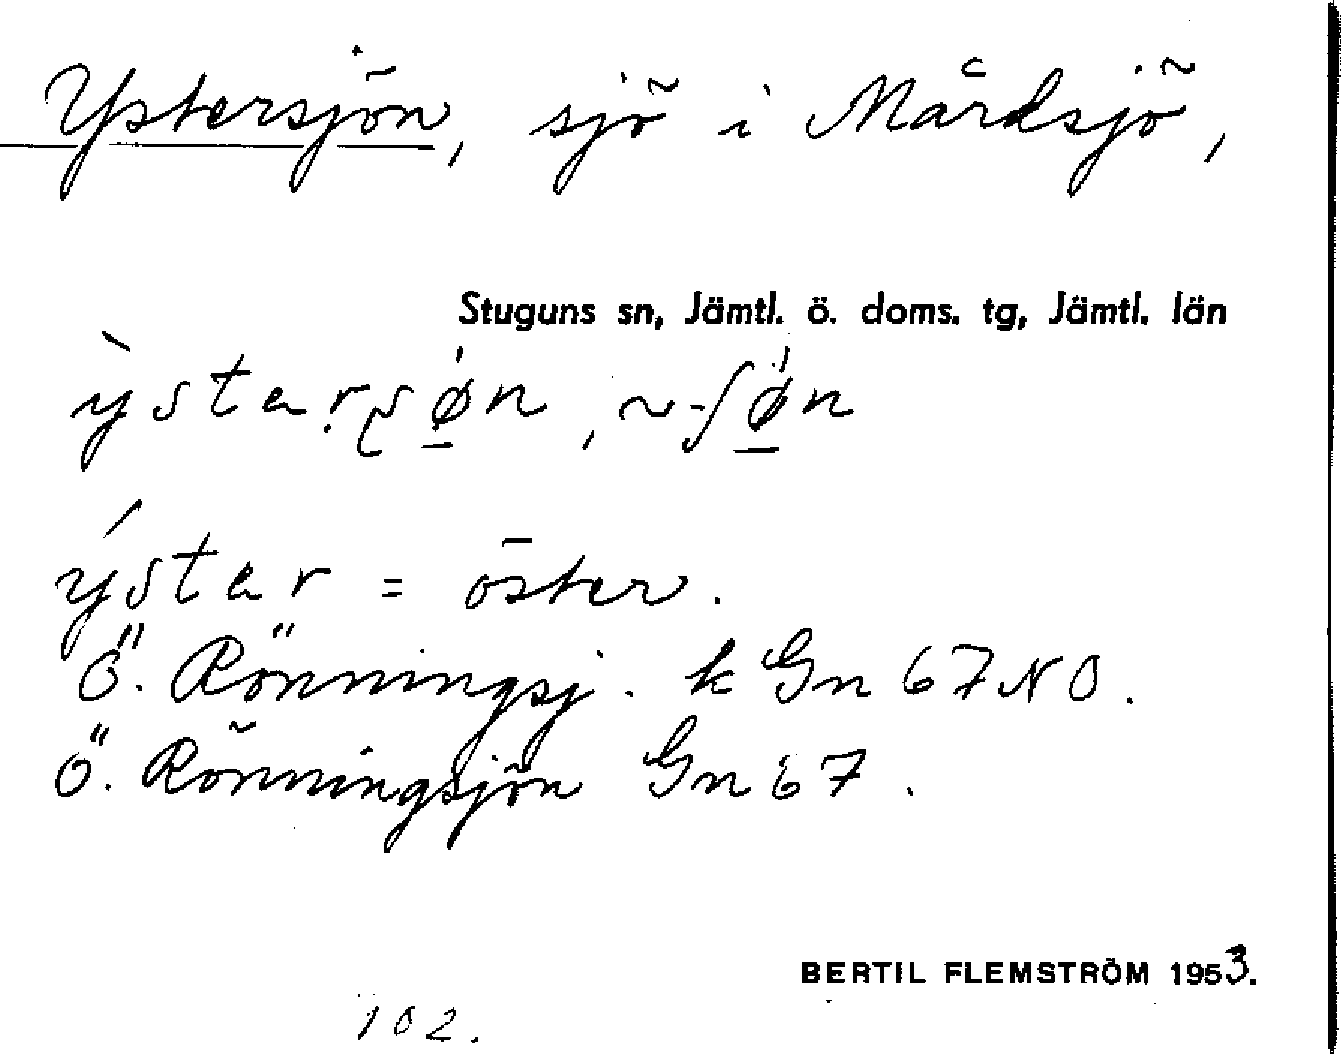 Ystersjön, sjö i Mårdsjö,
Stuguns sn, Jämtl. ö. doms. tg, Jämtl. län
ỳstarṣø̲̀n, ~-ʃø̲̀n
ýstar = öster.
Ö. Rönningsj. k Gn 67 NO.
Ö. Rönningsjön Gn 67.
BERTIL FLEMSTRÖM 1953.
102.